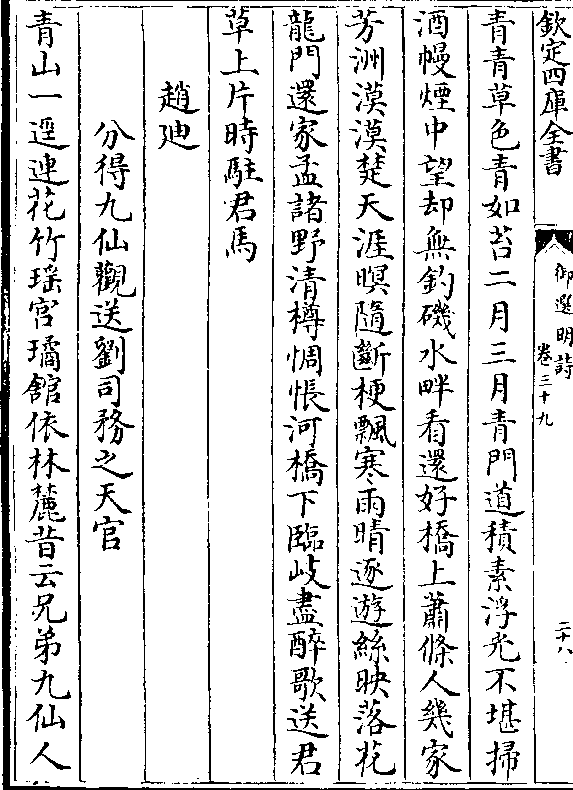 欽定四庫全書
御選明詩
卷三十九
二十八
青青草色青如苔二月三月青門道積素浮光不堪掃
酒幔煙中望却無釣磯水畔看還好橋上蕭條人幾家
芳洲漠漠楚天涯暝隨斷梗飄寒雨晴逐遊絲映落花
龍門還家孟諸野清樽惆悵河橋下臨歧盡醉歌送君
草上片時駐君馬
趙迪
分得九仙觀送劉司務之天官
青山一逕連花竹瑶宫璚館依林麓昔云兄弟九仙人